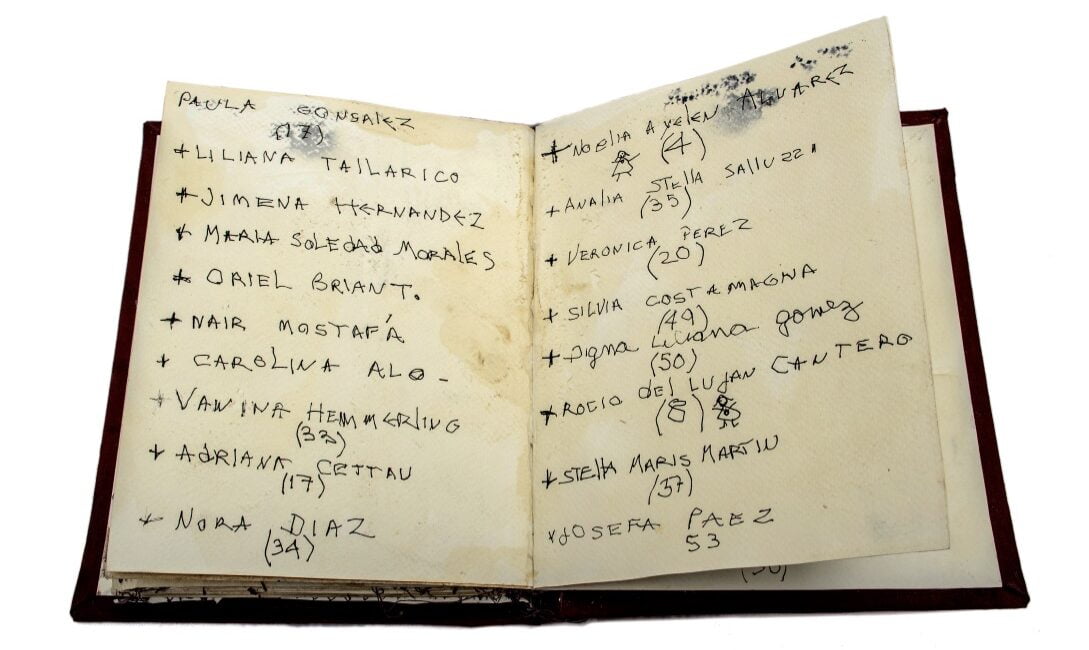 PAULA GONSALEZ
(17)
+ LILIANA TALLARICO
+ JIMENA HERNANDEZ
+ MARIA SOLEDAD MORALES
+ ORIEL BRIANT.
+ NAIR MOSTAFÁ
+ CAROLINA ALO -
+ VANINA HEMMERLING
(33)
+ ADRIANA CETTAU
(17)
+ NORA DIAZ
(34)
+ NOELIA AYELEN ALVAREZ
(4)
+ ANALIA STELLA SALLUZZI
(35)
+ VERONICA PEREZ
(20)
+ SILVIA COSTAMAGNA
(49)
+ Digna Liliana gomez
(50)
+ ROCIO DEL LUJAN CANTERO
(8)
+ STELLA MARIS MARTIN
(57)
+ JOSEFA PAEZ
53